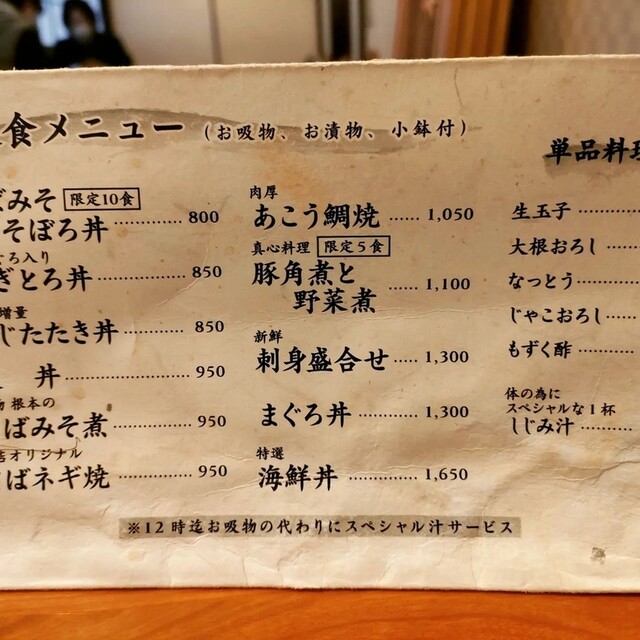 食メニュー (お吸物、お漬物、小鉢付)
みそ 限定10食
そぼろ丼 800
ろ入り
ぎとろ丼 850
増量
じたたき丼 850
丼 950
物 根本の
ばみそ煮 950
オリジナル
ばネギ焼 950
肉厚
あこう鯛焼 1,050
真心料理 限定5食
豚角煮と
野菜煮 1,100
新鮮
刺身盛合せ 1,300
まぐろ丼 1,300
特選
海鮮丼 1,650
単品料理
生玉子
大根おろし
なっとう
じゃこおろし
もずく酢
体の為に
スペシャルな1杯
しじみ汁
※12時迄お吸物の代わりにスペシャル汁サービス